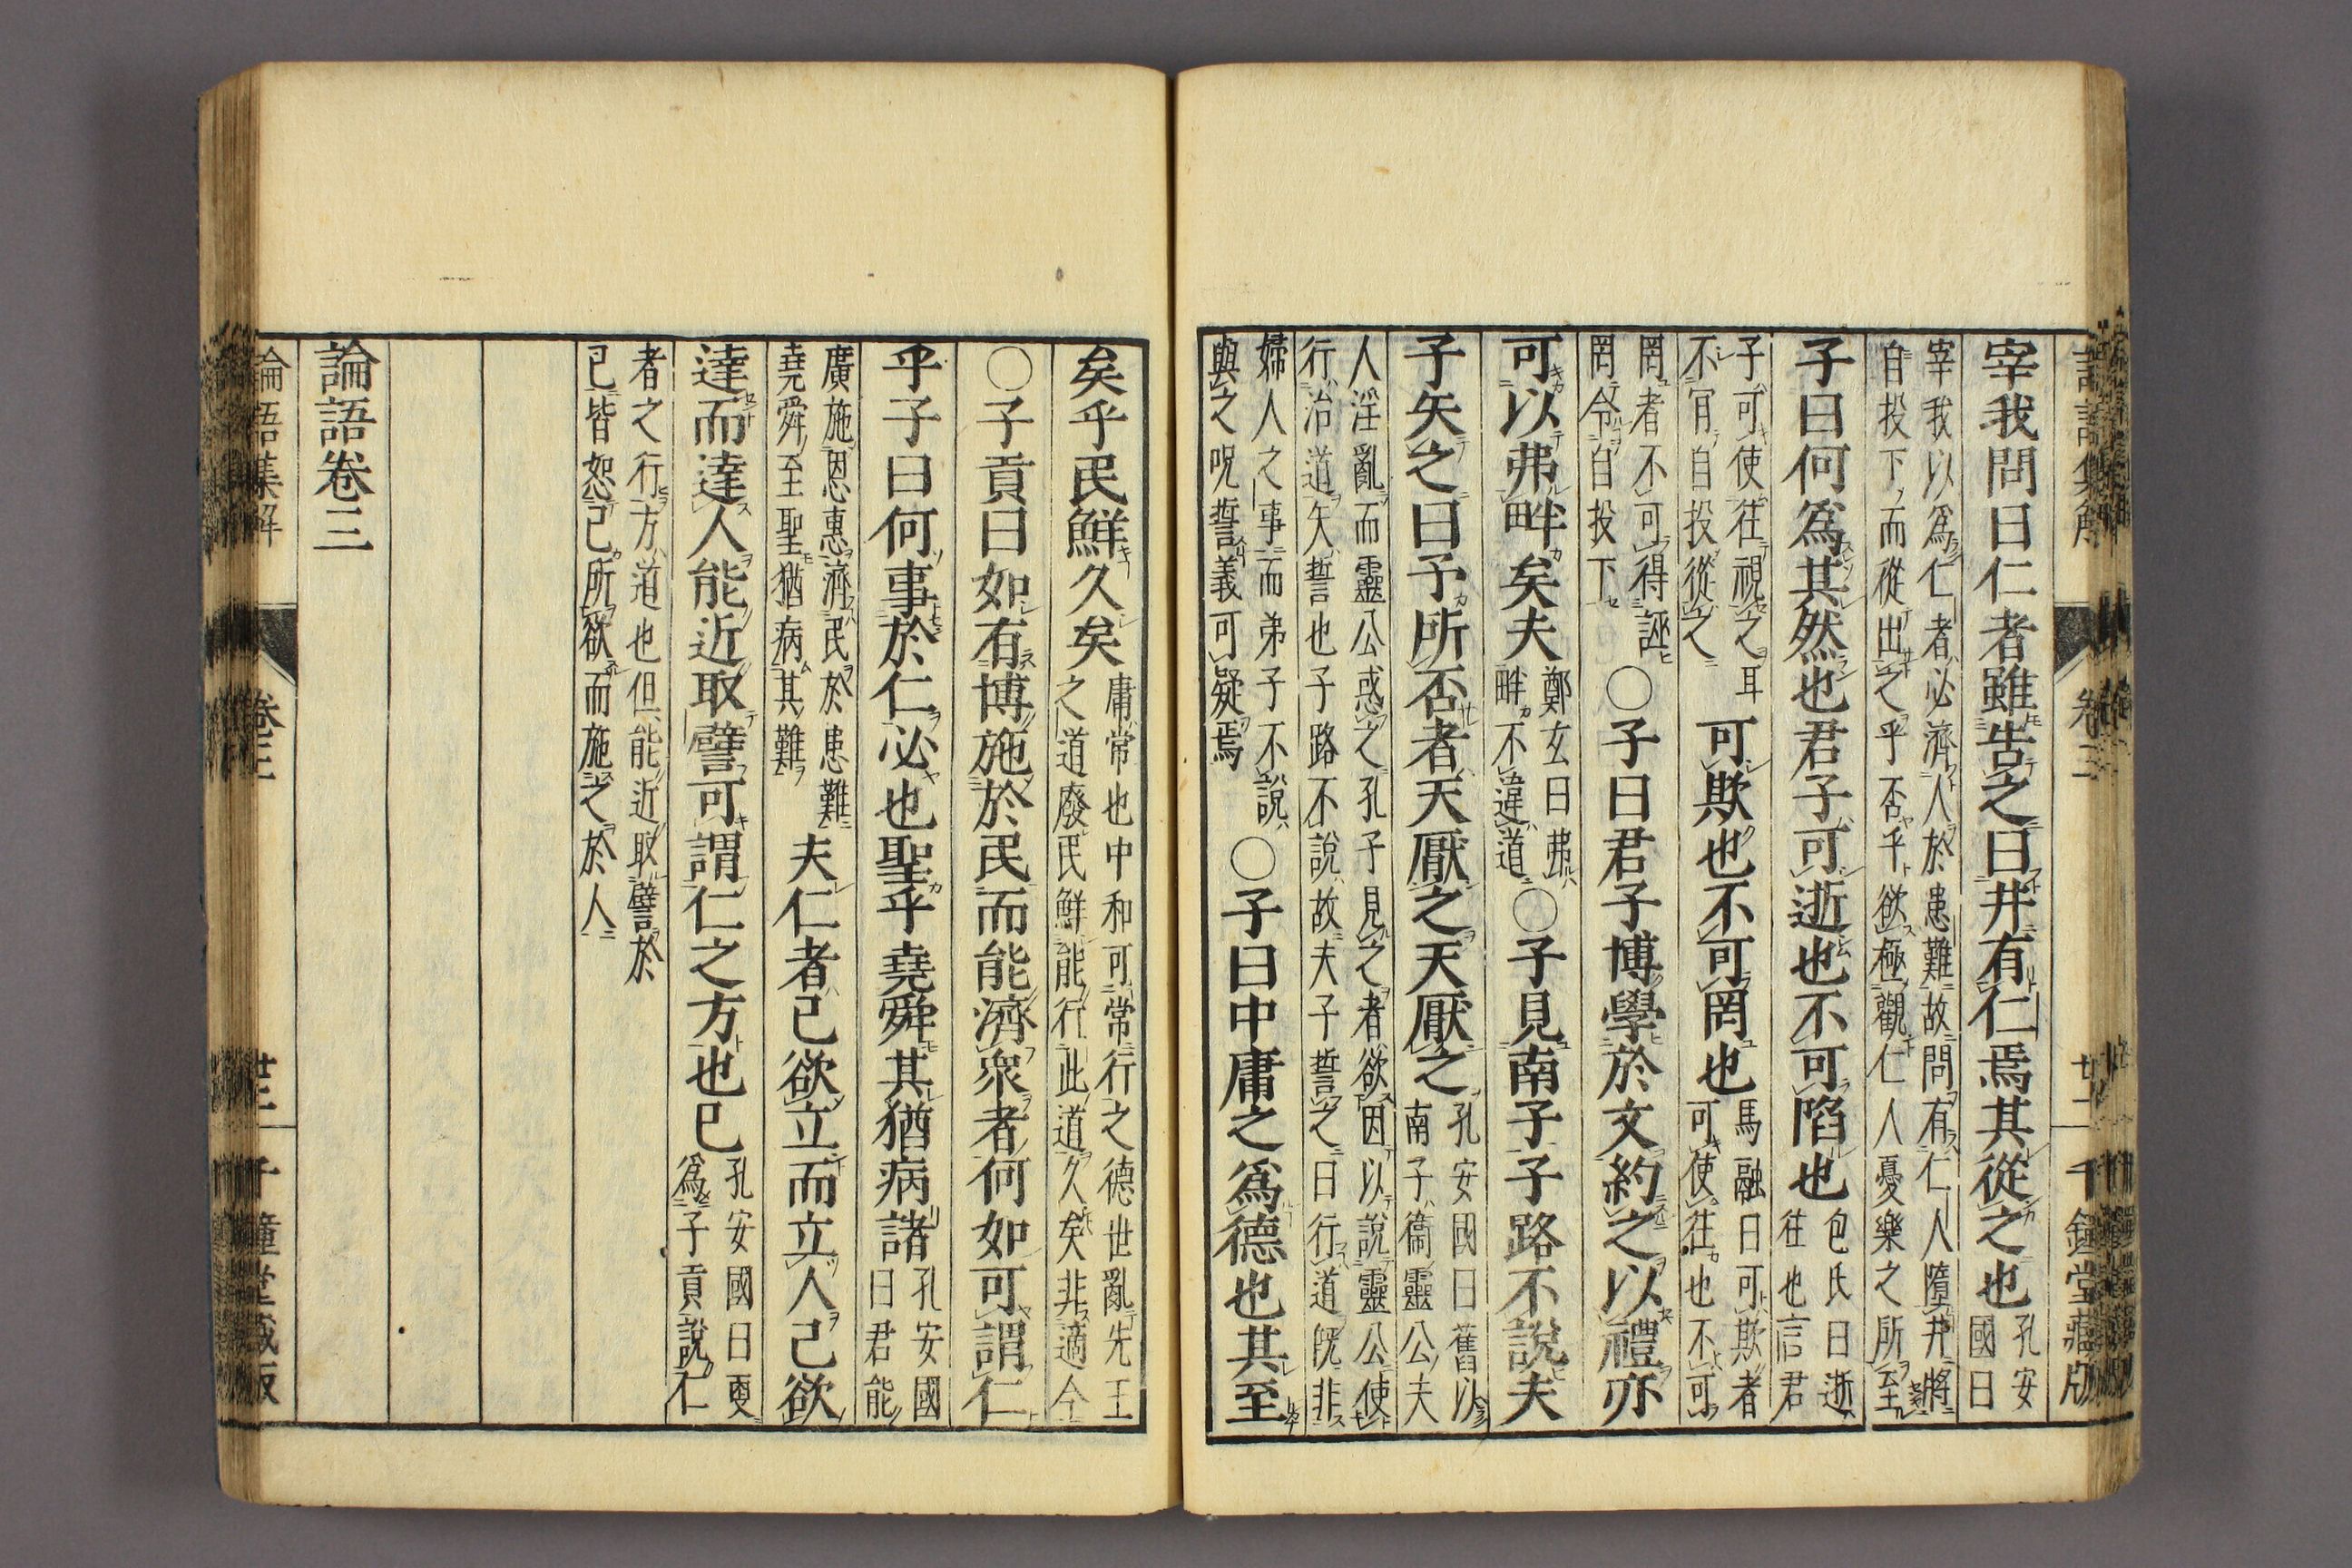 論語集解　卷三　廿二　千鍾堂藏版
宰我問曰仁者雖告之曰井有仁焉其從之也孔安國曰
宰我以爲仁者必濟人於患難故問有仁人墮井將
自投下而從出之乎否乎欲極觀仁人憂樂之所至
子曰何爲其然也君子可逝也不可陷也包氏曰逝往也言君
子可使往視之耳不肎自投從之可欺也不可罔也馬融曰可欺者可使往也不可
罔者不可得誣罔令自投下○子曰君子博學於文約之以禮亦
可以弗畔矣夫鄭玄曰弗畔不違道○子見南子子路不說夫
子矢之曰予所否者天厭之天厭之孔安國曰舊以南子衞靈公夫
人淫亂而靈公惑之孔子見之者欲因以說靈公使
行治道矢誓也子路不說故夫子誓之曰行道既非
婦人之事而弟子不說與之呪誓義可疑焉○子曰中庸之爲德也其至
矣乎民鮮久矣庸常也中和可常行之德世亂先王之道廢民鮮能行此道久矣非適今
○子貢曰如有博施於民而能濟衆者何如可謂仁
乎子曰何事於仁必也聖乎堯舜其猶病諸孔安國曰君能
廣施恩惠濟民於患難堯舜至聖猶病其難夫仁者己欲立而立人己欲
達而達人能近取譬可謂仁之方也已孔安國曰更爲子貢說仁
者之行方道也但能近取譬於
己皆恕己所欲而施之於人
論語卷三
論語集解　卷三　廿三　千鍾堂藏版